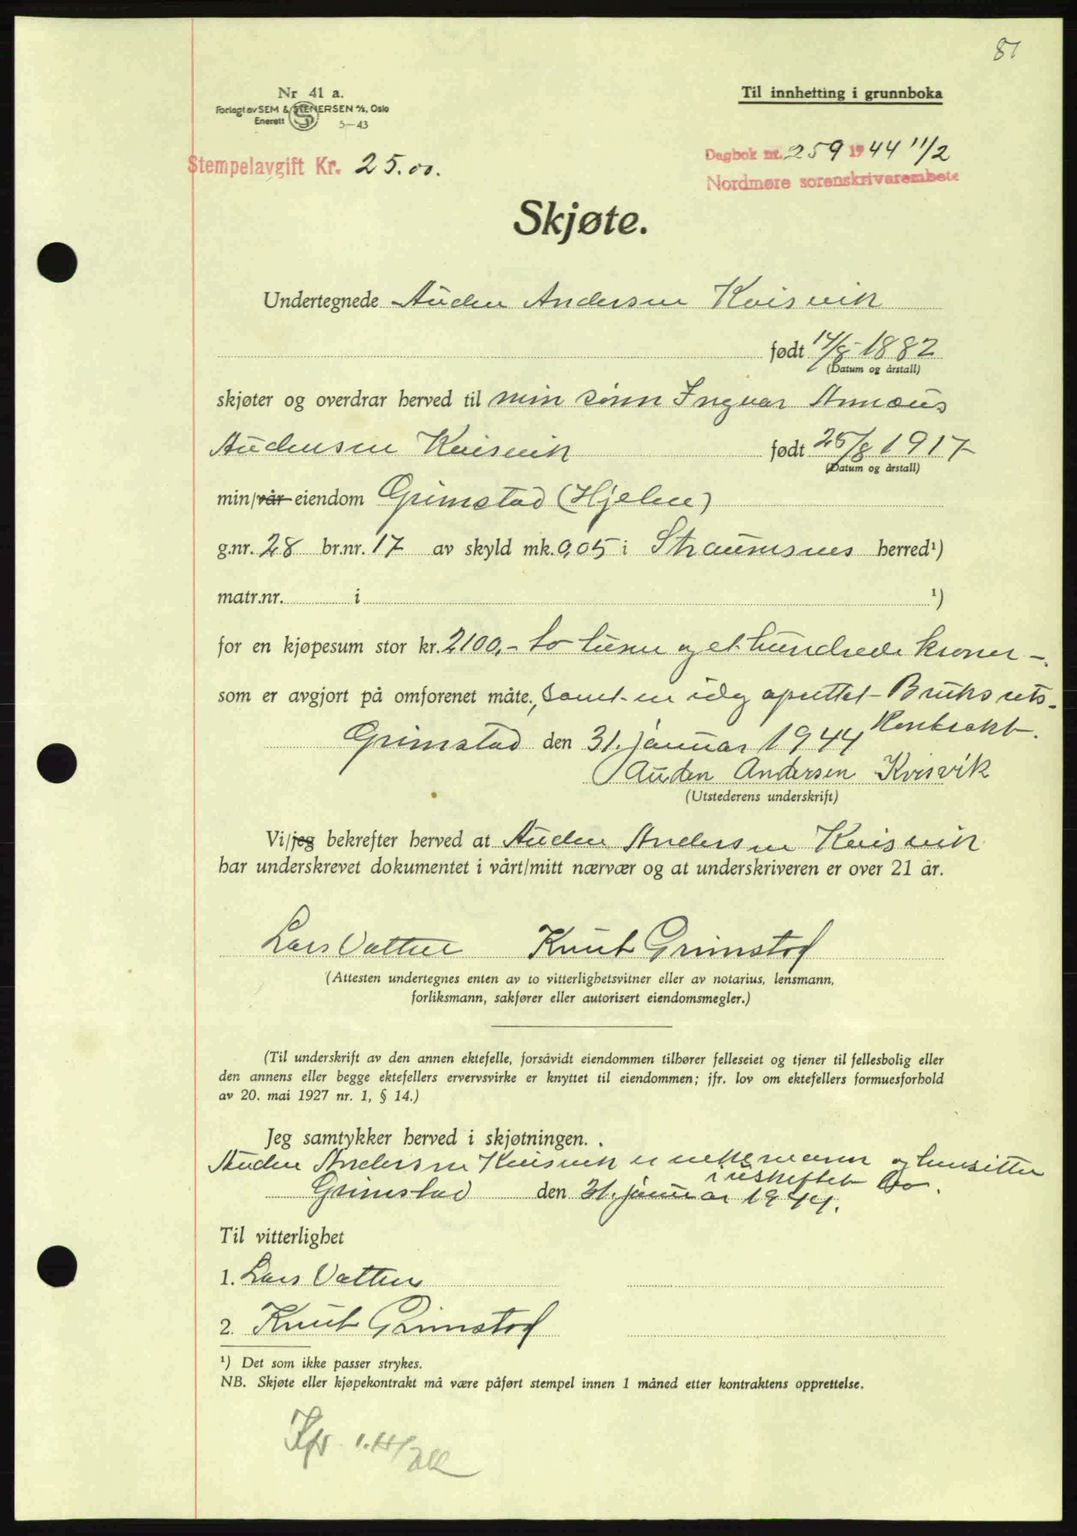 81
Nr 41 a.
Forlagt av SEM & STENERSEN A/S, Oslo
Enerett 5—43
Til innhetting i grunnboka
Stempelavgift Kr. 25.00.
Dagbok nr. 259 1944 11/2
Nordmøre sorenskrivarembete
Skjøte.
Undertegnede Auden Andersen Kvisvik
født 14/8-1882
(Datum og årstall)
skjøter og overdrar herved til min sønn Ingvar Annæus
Audensen Kvisvik født 25/8 1917
(Datum og årstall)
min/vår eiendom Grimstad (Hjelen)
g.nr. 28 br.nr. 17 av skyld mk. 0,05 i Straumsnes herred¹)
matr.nr. i ¹)
for en kjøpesum stor kr. 2100,- to tusen og et hundrede kroner -
som er avgjort på omforenet måte, samt en idag oprettet Bruksrets-
Kontrakt.
Grimstad den 31. januar 1944
Auden Andersen Kvisvik
(Utstederens underskrift)
Vi/jeg bekrefter herved at Auden Andersen Kvisvik
har underskrevet dokumentet i vårt/mitt nærvær og at underskriveren er over 21 år.
Lars Vatten Knut Grimstad
(Attesten undertegnes enten av to vitterlighetsvitner eller av notarius, lensmann,
forliksmann, sakfører eller autorisert eiendomsmegler.)
(Til underskrift av den annen ektefelle, forsåvidt eiendommen tilhører felleseiet og tjener til fellesbolig eller
den annens eller begge ektefellers ervervsvirke er knyttet til eiendommen; jfr. lov om ektefellers formuesforhold
av 20. mai 1927 nr. 1, § 14.)
Jeg samtykker herved i skjøtningen.
Auden Andersen Kvisvik er enkemann og hensitter
i uskiftet bo.
Grimstad den 31. januar 1944.
Til vitterlighet
1. Lars Vatten
2. Knut Grimstad
¹) Det som ikke passer strykes.
NB. Skjøte eller kjøpekontrakt må være påført stempel innen 1 måned etter kontraktens opprettelse.